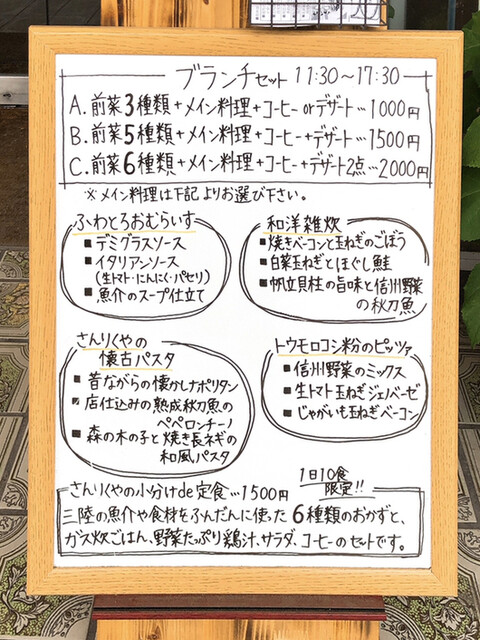 ブランチセット 11:30～17:30
A. 前菜3種類+メイン料理+コーヒーorデザート…1000円
B. 前菜5種類+メイン料理+コーヒー+デザート…1500円
C. 前菜6種類+メイン料理+コーヒー+デザート2点…2000円
※メイン料理は下記よりお選び下さい。
ふわとろおむらいす
■デミグラスソース
■イタリアンソース
(生トマト・にんにく・パセリ)
■魚介のスープ仕立て
和洋雑炊
■焼きベーコンと玉ねぎのごぼう
■白菜玉ねぎとほぐし鮭
■帆立貝柱の旨味と信州野菜
の秋刀魚
さんりくやの
懐古パスタ
■昔ながらの懐かしナポリタン
■店仕込みの熟成秋刀魚の
ペペロンチーノ
■森の木の子と焼き長ネギの
和風パスタ
トウモロコシ粉のピッツァ
■信州野菜のミックス
■生トマト玉ねぎジェノベーゼ
■じゃがいも玉ねぎベーコン
さんりくやの小分けde定食…1500円
1日10食
限定!!
三陸の魚介や食材をふんだんに使った6種類のおかずと、
ガス炊ごはん、野菜たっぷり鶏汁、サラダ、コーヒーのセットです。